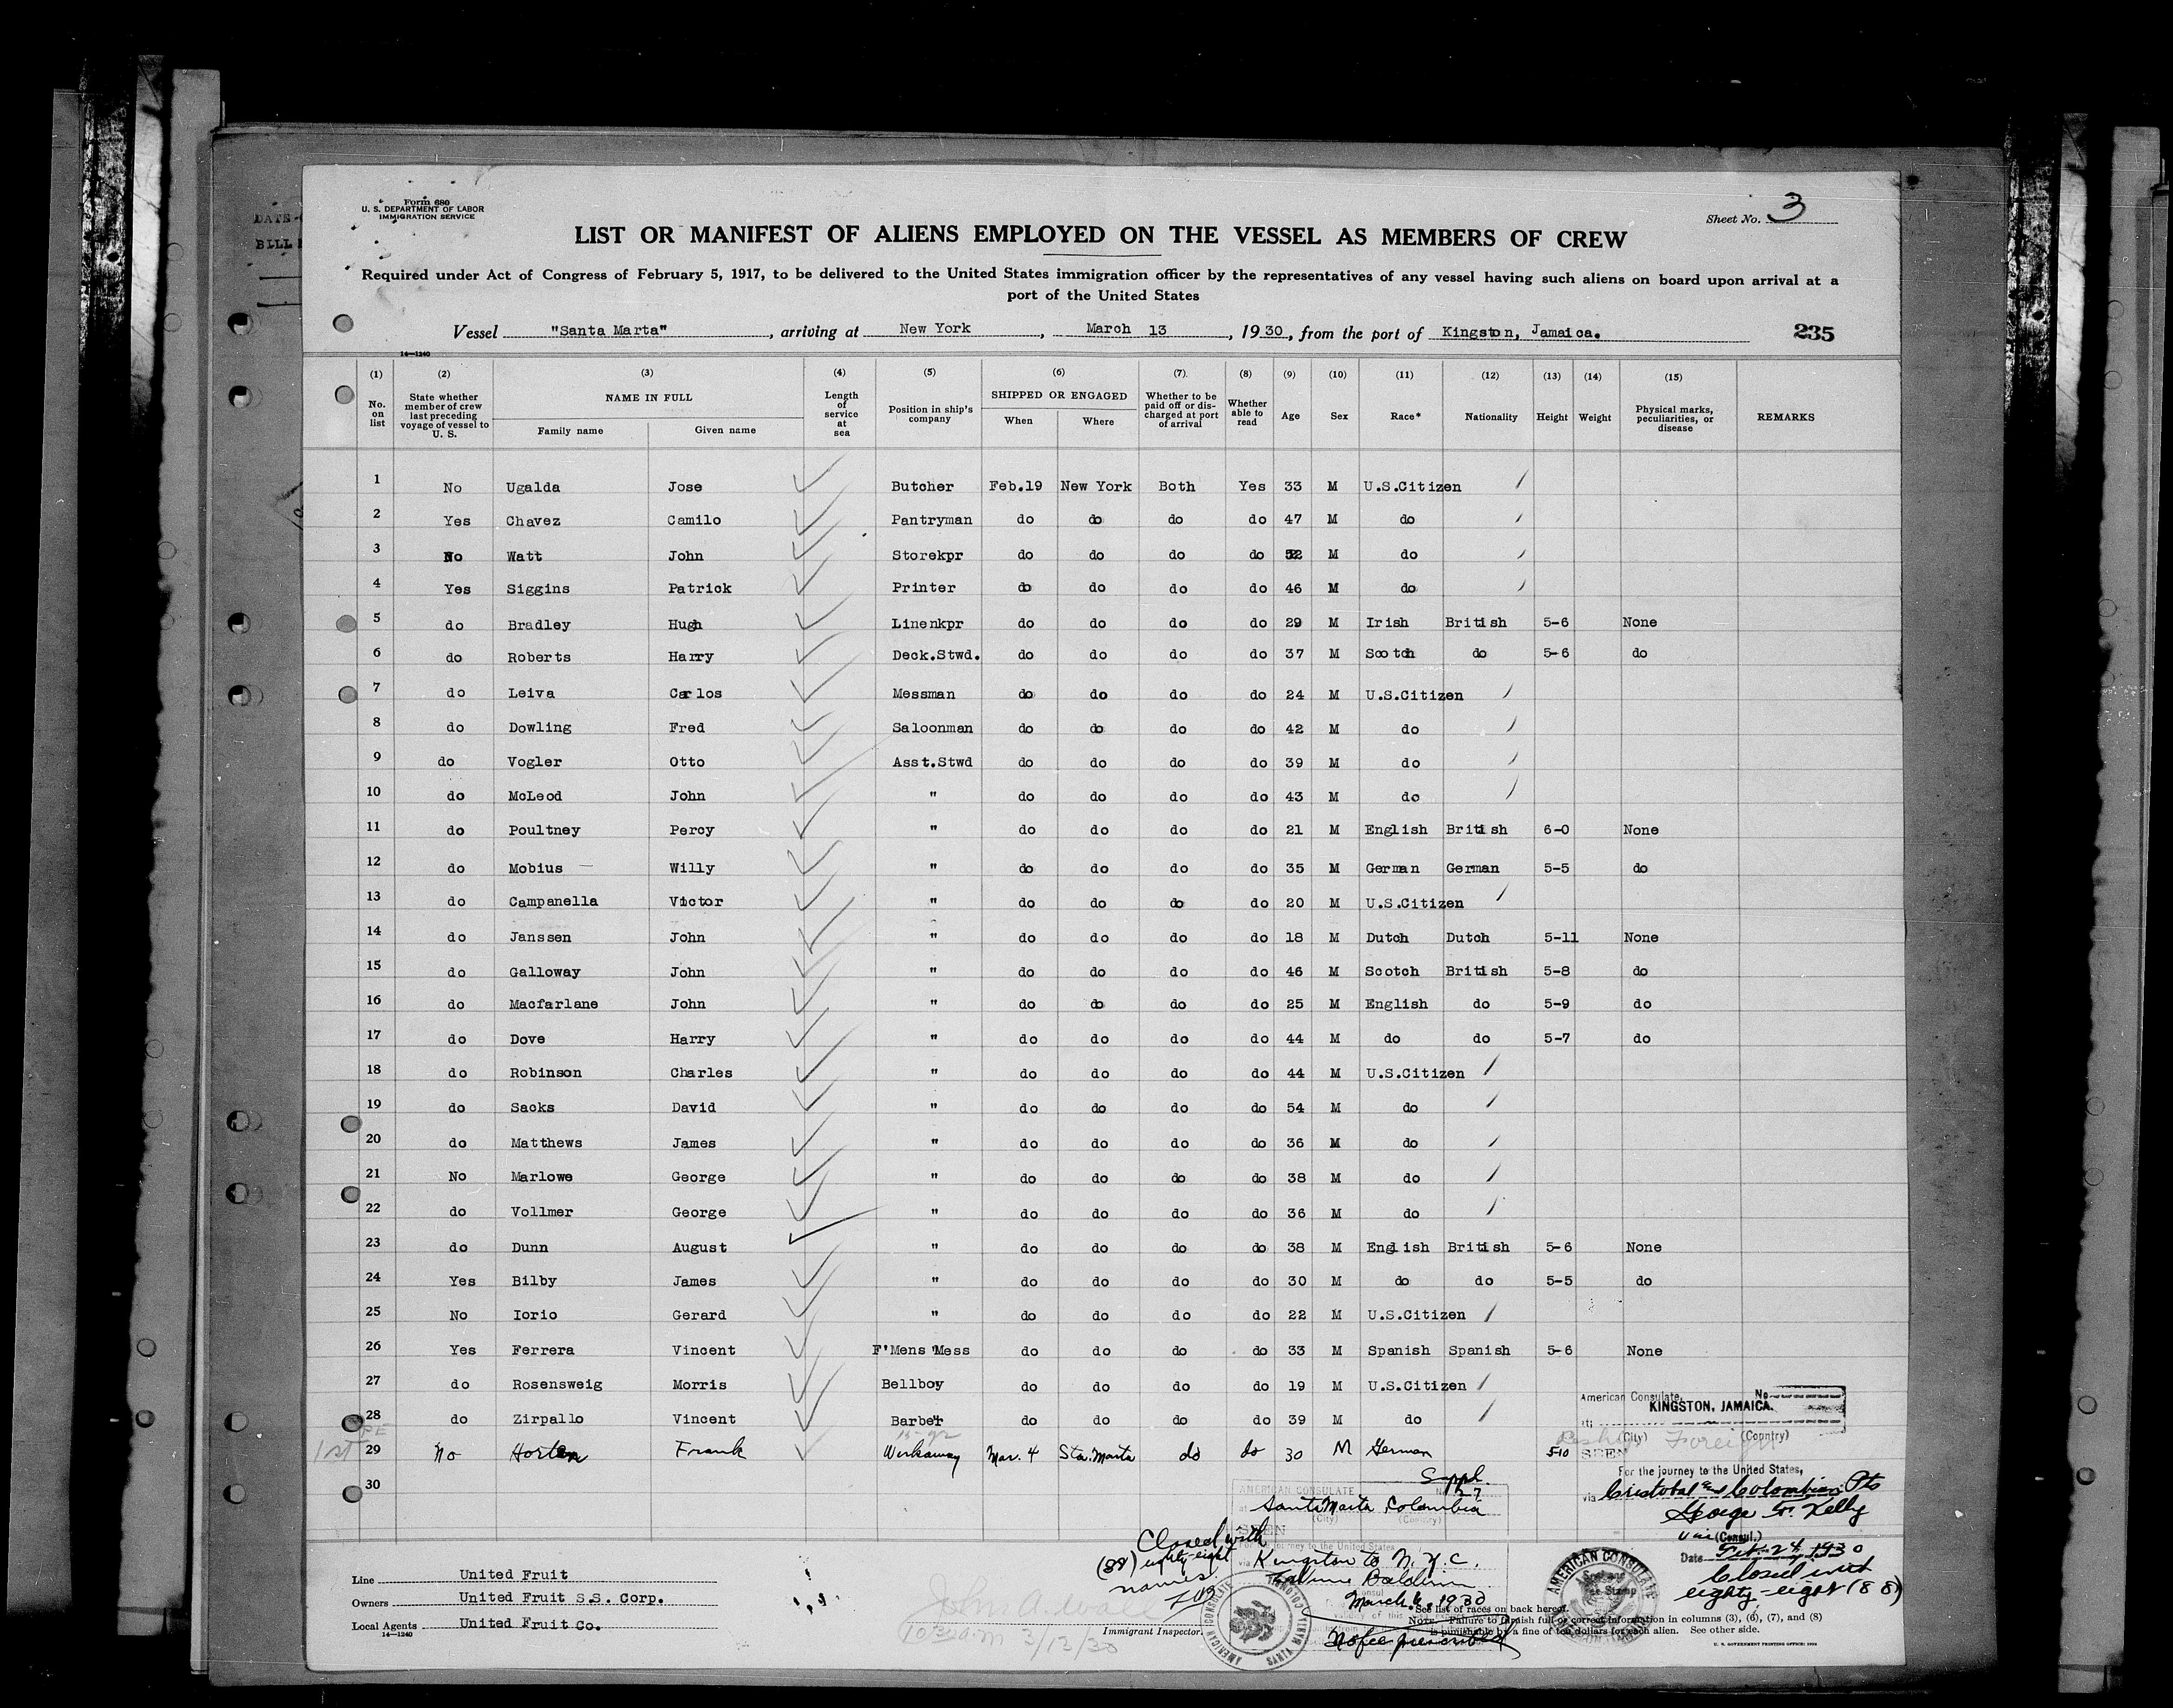 DATE
BILL
Form 680
U. S. DEPARTMENT OF LABOR
IMMIGRATION SERVICE
Sheet No. 3
LIST OR MANIFEST OF ALIENS EMPLOYED ON THE VESSEL AS MEMBERS OF CREW
Required under Act of Congress of February 5, 1917, to be delivered to the United States immigration officer by the representatives of any vessel having such aliens on board upon arrival at a
port of the United States
Vessel "Santa Marta", arriving at New York, March 13, 1930, from the port of Kingston, Jamaica. 235
14—1240
(1) (2) (3) (4) (5) (6) (7) (8) (9) (10) (11) (12) (13) (14) (15)
No. on list State whether member of crew last preceding voyage of vessel to U. S. NAME IN FULL Family name Given name Length of service at sea Position in ship's company SHIPPED OR ENGAGED When Where Whether to be paid off or discharged at port of arrival Whether able to read Age Sex Race* Nationality Height Weight Physical marks, peculiarities, or disease REMARKS
1 No Ugalda Jose Butcher Feb.19 New York Both Yes 33 M U.S.Citizen
2 Yes Chavez Camilo Pantryman do do do do 47 M do
3 No Watt John Storekpr do do do do 52 M do
4 Yes Siggins Patrick Printer do do do do 46 M do
5 do Bradley Hugh Linenkpr do do do do 29 M Irish British 5-6 None
6 do Roberts Harry Deck.Stwd. do do do do 37 M Scotch do 5-6 do
7 do Leiva Carlos Messman do do do do 24 M U.S.Citizen
8 do Dowling Fred Saloonman do do do do 42 M do
9 do Vogler Otto Asst.Stwd do do do do 39 M do
10 do McLeod John " do do do do 43 M do
11 do Poultney Percy " do do do do 21 M English British 6-0 None
12 do Mobius Willy " do do do do 35 M German German 5-5 do
13 do Campanella Victor " do do do do 20 M U.S.Citizen
14 do Janssen John " do do do do 18 M Dutch Dutch 5-11 None
15 do Galloway John " do do do do 46 M Scotch British 5-8 do
16 do Macfarlane John " do do do do 25 M English do 5-9 do
17 do Dove Harry " do do do do 44 M do do 5-7 do
18 do Robinson Charles " do do do do 44 M U.S.Citizen
19 do Sacks David " do do do do 54 M do
20 do Matthews James " do do do do 36 M do
21 No Marlowe George " do do do do 38 M do
22 do Vollmer George " do do do do 36 M do
23 do Dunn August " do do do do 38 M English British 5-6 None
24 Yes Bilby James " do do do do 30 M do do 5-5 do
25 No Iorio Gerard " do do do do 22 M U.S.Citizen
26 Yes Ferrera Vincent F'Mens Mess do do do do 33 M Spanish Spanish 5-6 None
27 do Rosensweig Morris Bellboy do do do do 19 M U.S.Citizen
28 do Zirpallo Vincent Barber do do do do 39 M do
1st 29 No Horten Frank Workaway Mar. 4 Sta. Marta do do 30 M German 5-10
30
American Consulate, No.
KINGSTON, JAMAICA.
(City) (Country)
Foreign
SEEN
For the journey to the United States,
via Cristobal and Colombian Pts
George F. Kelly
Vice (Consul.)
Date Feb. 24 1930
Closed with
eighty-eight (88)
Suppl.
AMERICAN CONSULATE
at Santa Marta Colombia
(City) (Country)
SEEN
For the journey to the United States
via Kingston to N. Y. C.
Baldwin
March 6, 1930
No fee prescribed
Closed with
(88) eighty-eight
names.
AMERICAN CONSULATE
AMERICAN CONSULATE SANTA MARTA COLOMBIA
Line United Fruit
Owners United Fruit S.S. Corp.
Local Agents United Fruit Co.
14—1240
John A. Wall
3/13/30
Immigrant Inspector.
*See list of races on back hereof.
NOTE.—Failure to furnish full or correct information in columns (3), (6), (7), and (8)
is punishable by a fine of ten dollars for each alien. See other side.
U. S. GOVERNMENT PRINTING OFFICE: